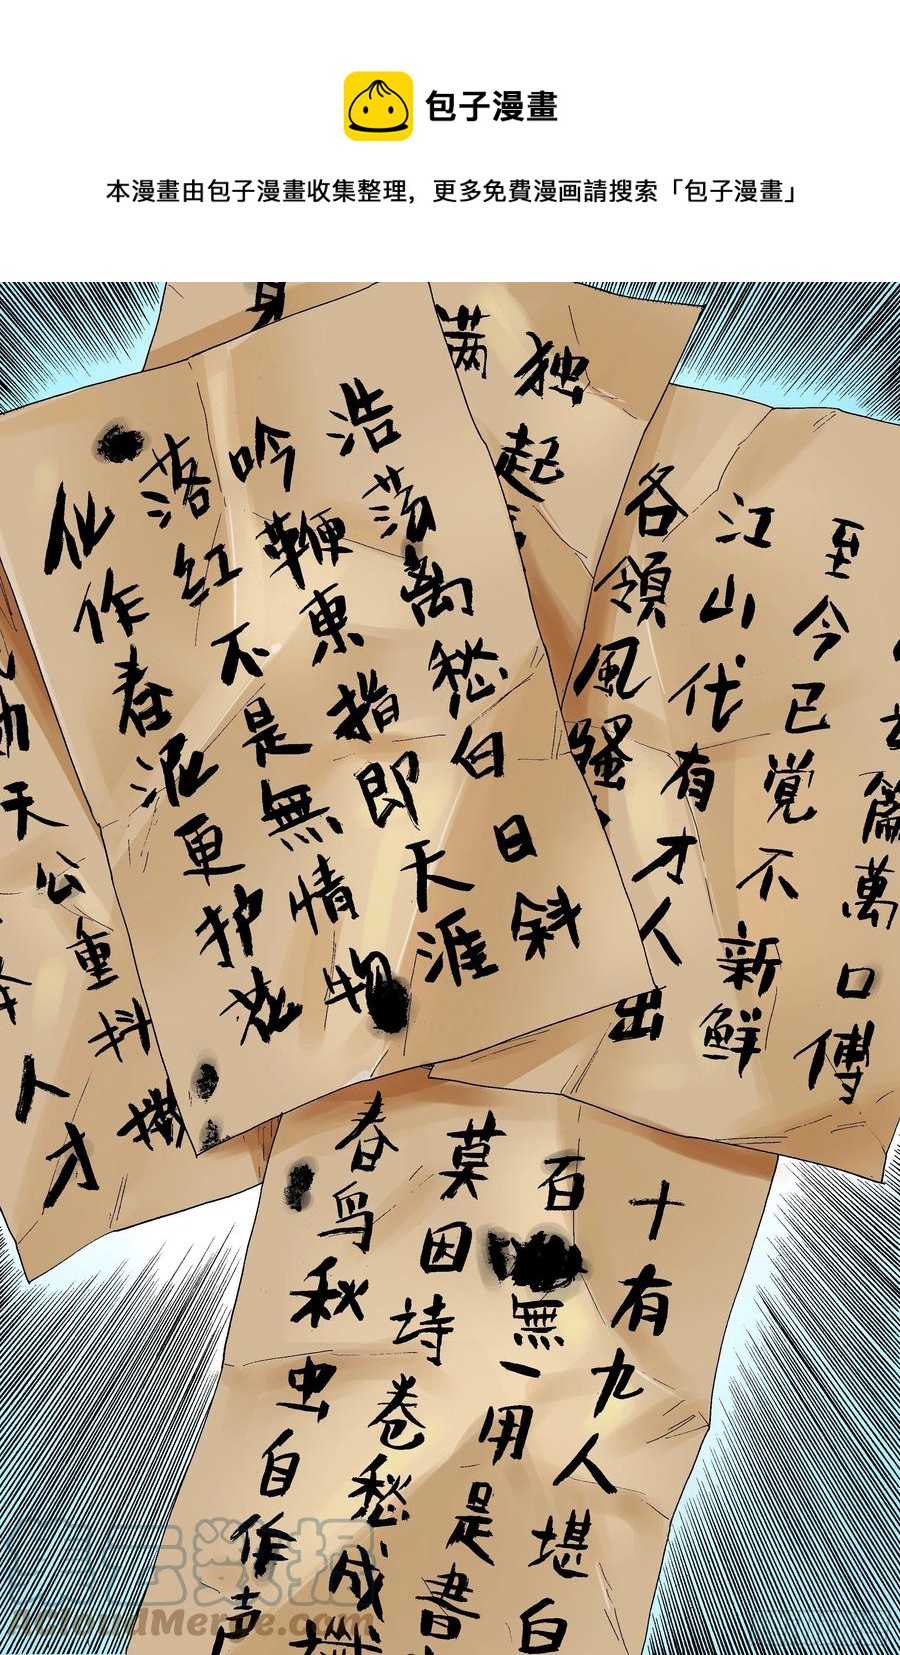 包子漫畫
本漫畫由包子漫畫收集整理，更多免費漫画請搜索「包子漫畫」
身
满
独起
浩荡离愁白日斜
吟鞭東指即天涯
落红不是無情物
化作春泥更护花
篇萬口傅
至今已觉不新鮮
江山代有才人出
各領風騷
天公重抖擞
人才
十有九人堪白
百無一用是書
莫因诗卷愁成
春鸟秋虫自作声
ACloudMerge.com